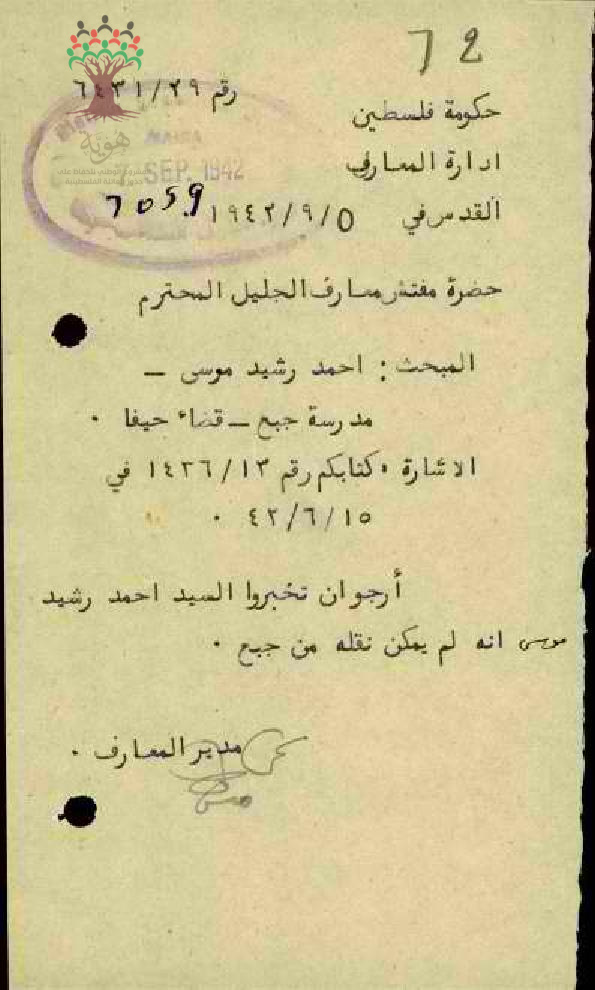 72
رقم ٦٤٣١/٢٩
حكومة فلسطين
ادارة المعارف
القدس في ١٩٤٢/٩/٥
7 SEP. 1942
7059
هوية
حضرة مفتش معارف الجليل المحترم
المبحث : احمد رشيد موسى –
مدرسة جبع – قضاء حيفا ٠
الاشارة ٠ كتابكم رقم ١٤٢٦/١٣ في
٤٢/٦/١٥ ٠
أرجو ان تخبروا السيد احمد رشيد
موسى انه لم يمكن نقله من جبع ٠
مدير المعارف ٠